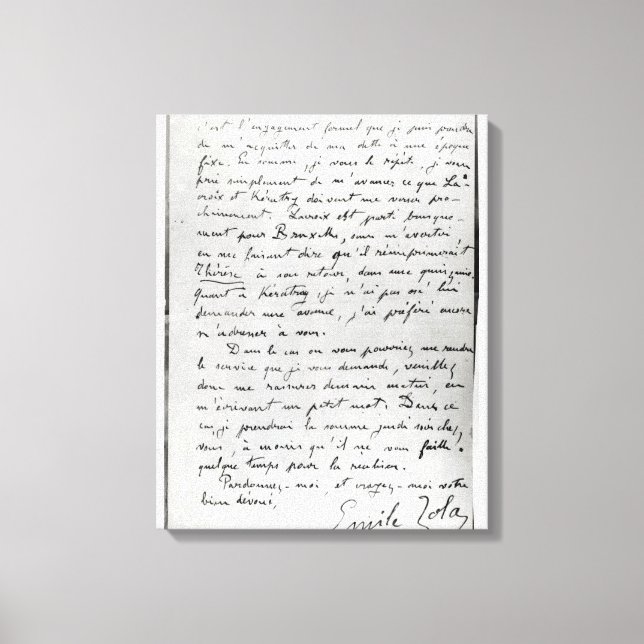 c'est l'engagement formel que je puis prendre
de m'acquitter de ma dette à une époque
fixe. En somme, je vous le répète, je vous
prie simplement de m'avancer ce que La-
croix et Kératry doivent me verser pro-
chainement. Lacroix est parti brusque-
ment pour Bruxelles, sans m'avertir
en me faisant dire qu'il réimprimerait
Thérèse à son retour, dans une quinzaine.
Quant à Kératry, je n'ai pas osé lui
demander une avance, j'ai préféré encore
m'adresser à vous.
Dans le cas où vous pourriez me rendre
le service que je vous demande, veuillez
donc me rassurer demain matin, en
m'écrivant un petit mot. Dans ce
cas, je prendrai la somme jeudi soir chez
vous, à moins qu'il ne vous faille
quelque temps pour la réaliser.
Pardonnez-moi, et croyez-moi votre
bien dévoué,
Emile Zola